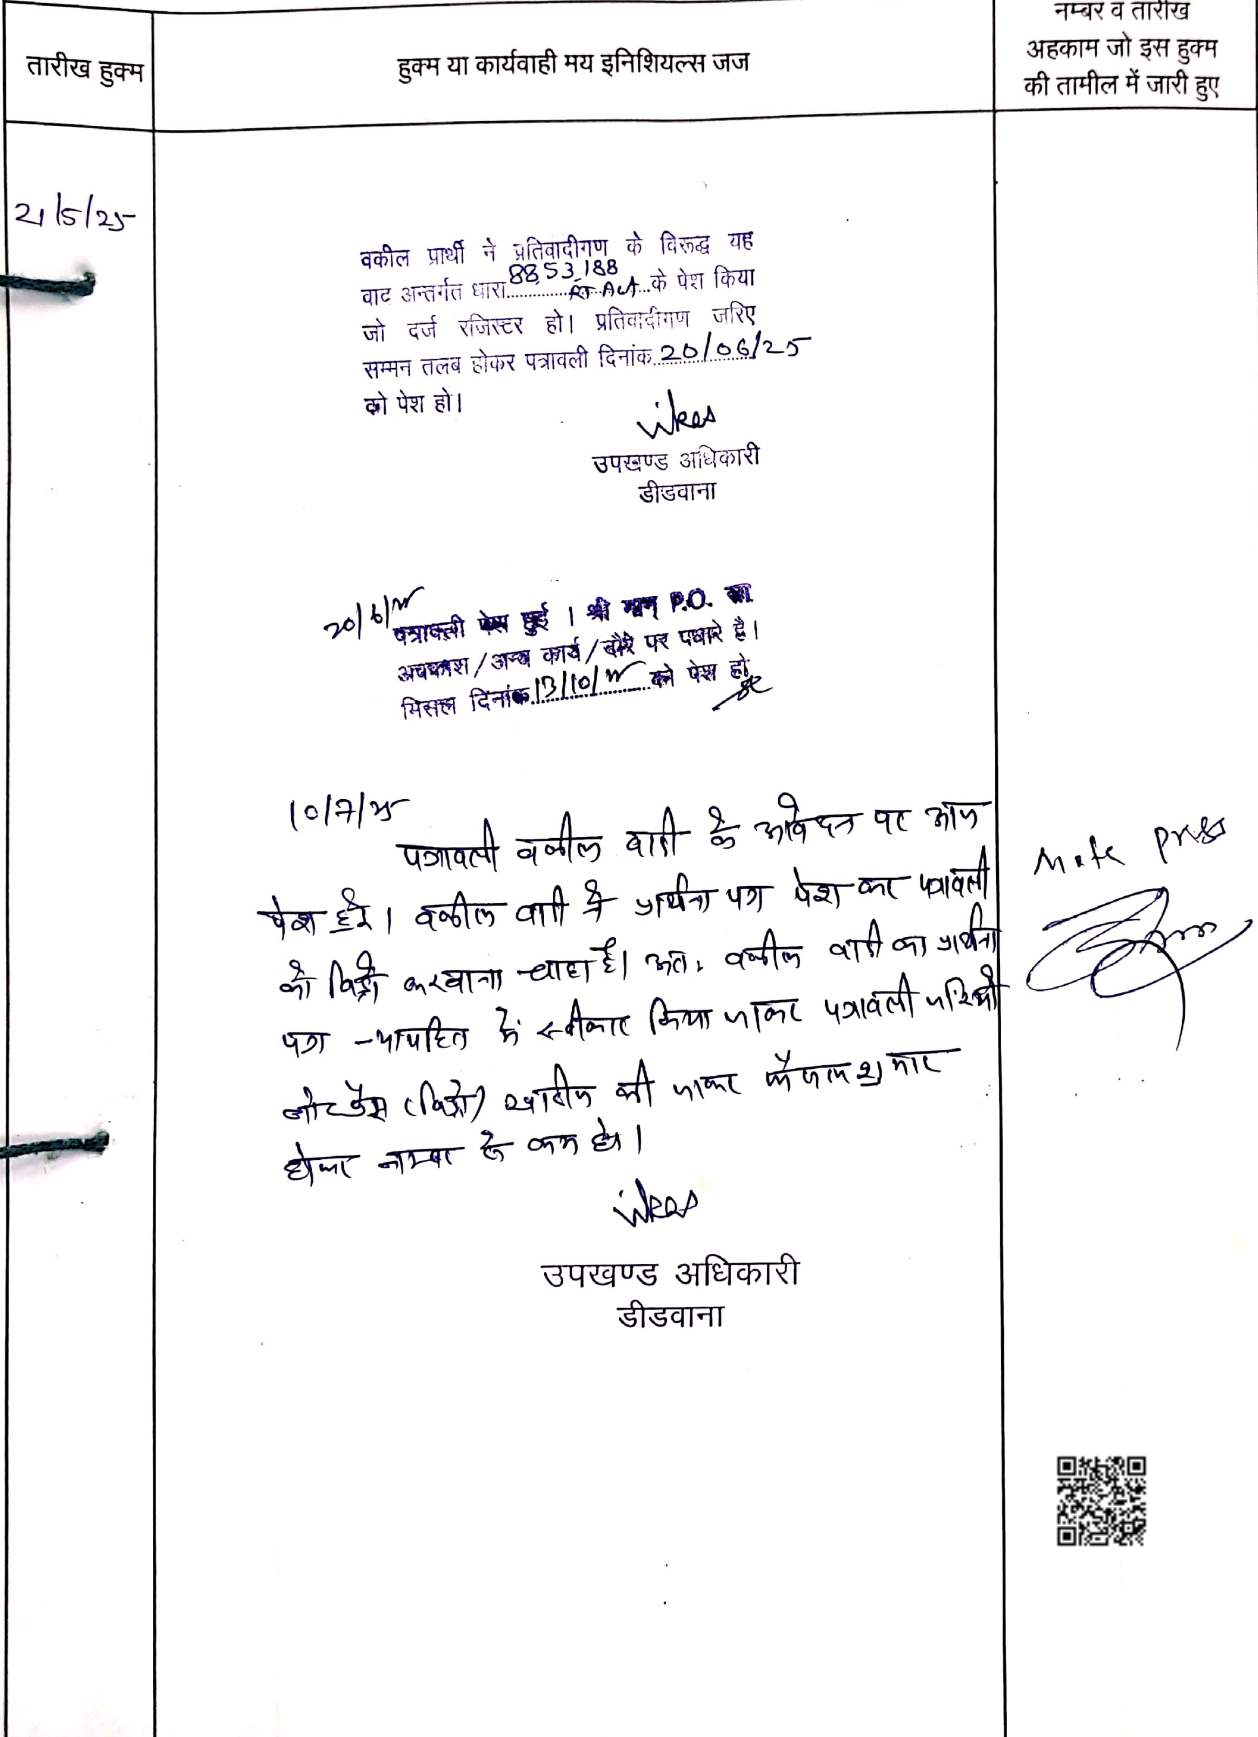 नम्बर व तारीख
अहकाम जो इस हुक्म
की तामील में जारी हुए
तारीख हुक्म
हुक्म या कार्यवाही मय इनिशियल्स जज
21/5/25
वकील प्रार्थी ने प्रतिवादीगण के विरूद्ध यह
वाद अन्तर्गत धारा 88,53,188 RT Act के पेश किया
जो दर्ज रजिस्टर हो। प्रतिवादीगण जरिए
सम्मन तलब होकर पत्रावली दिनांक 20/06/25
को पेश हो।
उपखण्ड अधिकारी
डीडवाना
20/6/25
पत्रावली पेश हुई । श्री मान् P.O. का
अवकाश/अन्य कार्य/दौरे पर पधारे है।
मिसल दिनांक 13/10/25 को पेश हो
10/7/25
पत्रावली वकील वादी के आवेदन पर आज
पेश हुई। वकील वादी ने प्रार्थना पत्र पेश कर पत्रावली
को विड्रो करवाना चाहा है। अतः वकील वादी का प्रार्थना
पत्र न्यायहित में स्वीकार किया जाकर पत्रावली
नोट प्रेस (विड्रो) खारीज की जाकर फैसल शुमार
होकर नम्बर से कम हो।
उपखण्ड अधिकारी
डीडवाना
Note press